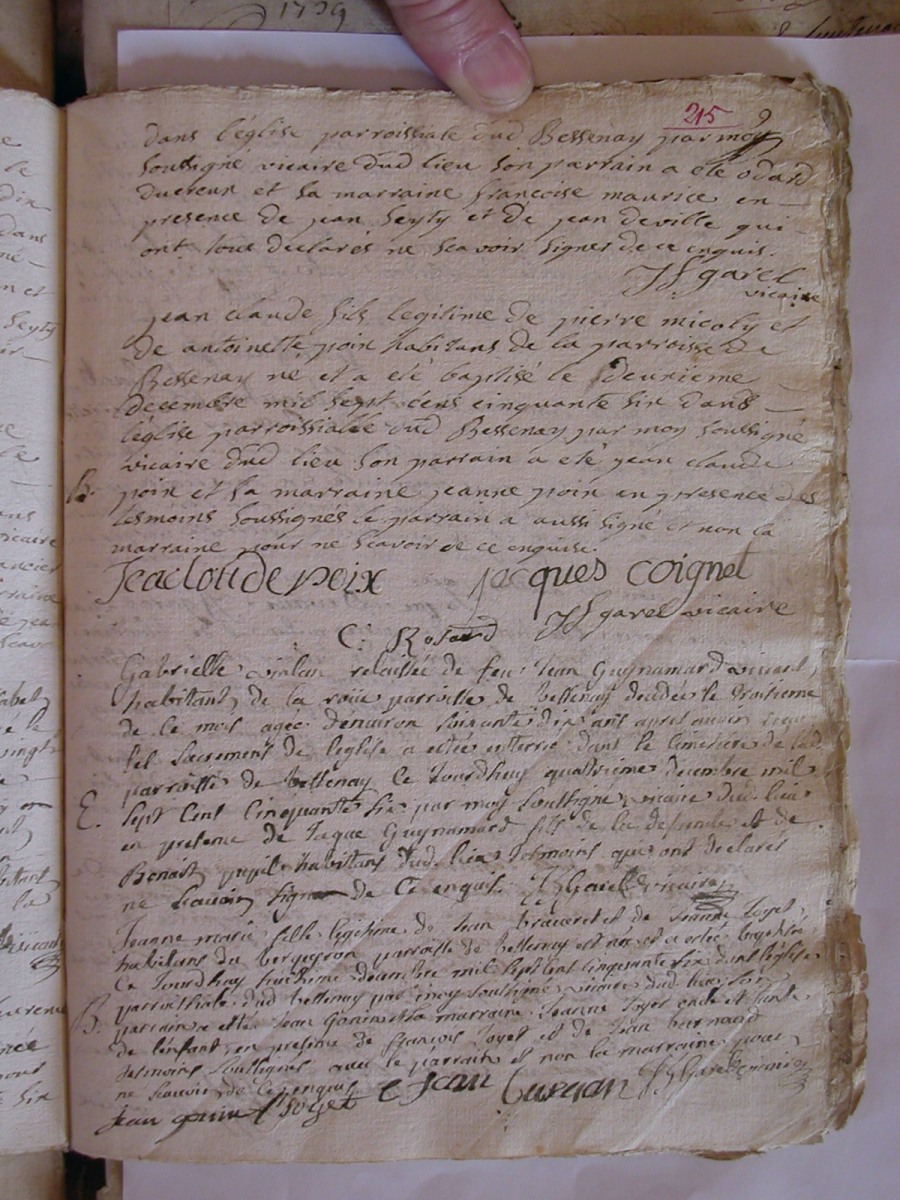 1739
215
dans l'église parroissiale dud Bessenay par moy
soussigné vicaire dud lieu son parrain a été odard
ducreux et sa marraine francoise maurice en
presence de jean seyty et de jean deville qui
ont tous declarés ne scavoir signer de ce enquis.
garel
vicaire
jean claude fils legitime de pierre micoly et
de antoinette poin habitans de la parroisse de
Bessenay né et a eté baptisé le deuxieme
decembre mil sept cens cinquante six dans
l'église parroissialle dud Bessenay par moy soussigné
vicaire dud lieu son parrain a eté jean claude
B. poin et sa marraine jeanne poin en presence des
tesmoins soussignés le parrain a aussi signé et non la
marraine pour ne scavoir de ce enquise.
Jeacloude poix jacques coignet
garel vicaire
C: Rosard
Gabrielle relaissée de feu Jean Guynamard vivant
habitant de la parroisse de Bessenay decedée le troisieme
de ce mois agée denviron soixante dix ans apres avoir reçu
les sacrement de leglise a estée enterrée dans le cimetiere de lad
parroisse de Bessenay ce jourdhuy quatrieme decembre mil
E. sept cent cinquante six par moy soussigné vicaire dud lieu
en presence de Jaque Guynamard fils de la defunte et de
Benoist pupil habitans dud lieu tesmoins qui ont declarés
ne scavoir signer de ce enquis. Garel vicaire
Jeanne marie fille legitime de Jean et de Jeanne Joyet
habitans du bergeron parroisse de Bessenay est née et a estée baptisée
ce jourdhuy huictieme decembre mil sept cent cinquante six dans leglise
parroissiale dud Bessenay par moy soussigné vicaire dud lieu son
B. parrain a esté Jean Gonin et la marraine Jeanne Joyet et tante
de l'enfant en presence de françois Joyet et de Jean
tesmoins soussignés avec le parrain et non la marraine pour
ne scavoir de ce enquis
Jean gonin f joyet Jean Garel vicaire